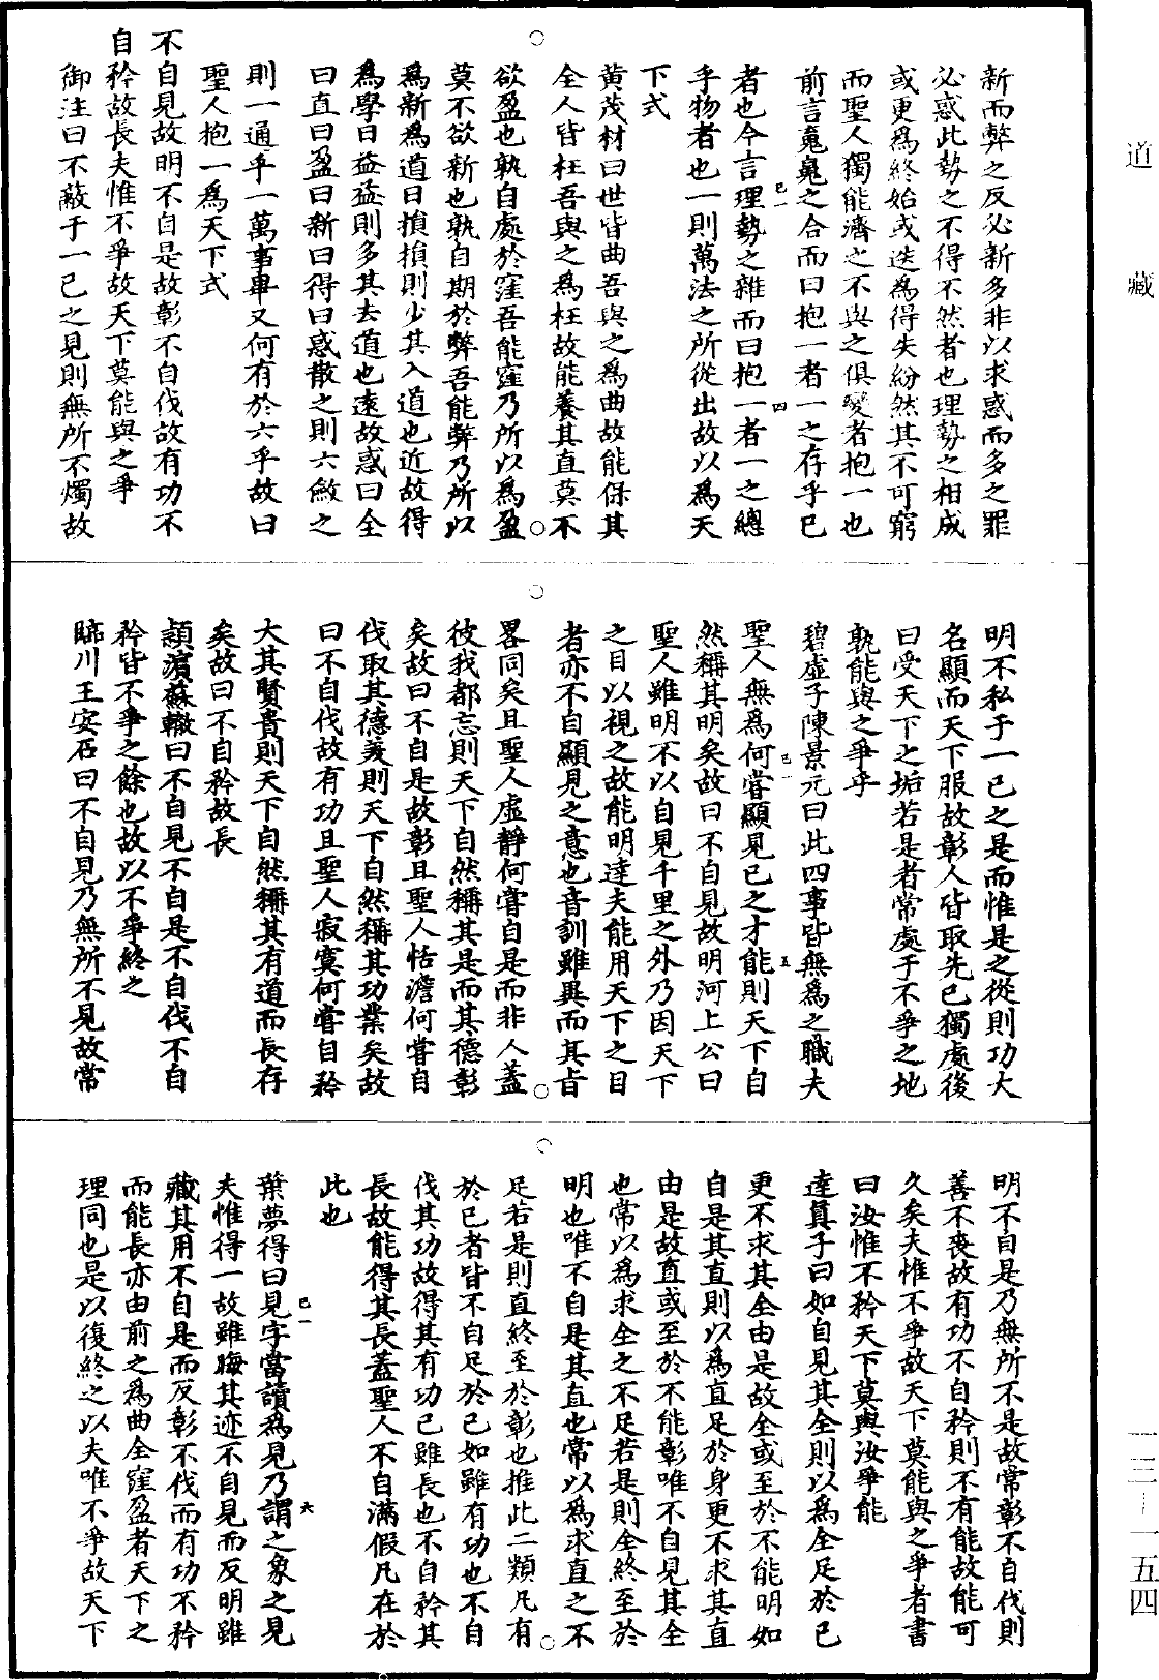 道藏
新而弊之反必新多非以求惑而多之罪
必惑此勢之不得不然者也理勢之相成
或更為終始或迭為得失紛然其不可窮
而聖人獨能濟之不與之俱變者抱一也
前言䰟㿟之合而曰抱一者一之存乎已
者也今言理勢之雜而曰抱一者一之總
乎物者也一則萬法之所從出故以為天
下式
黃茂材曰世皆曲吾與之為曲故能保其
全人皆枉吾與之為枉故能養其直莫不
欲盈也孰自處於窪吾能窪乃所以為盈
莫不欲新也孰自期於弊吾能弊乃所以
為新為道日損損則少其入道也近故得
為學日益益則多其去道也遠故惑曰全
曰直曰盈曰新曰得曰惑散之則六斂之
則一通乎一萬事畢又何有於六乎故曰
聖人抱一為天下式
不自見故明不自是故彰不自伐故有功不
自矜故長夫惟不爭故天下莫能與之爭
御注曰不蔽于一已之見則無所不燭故
明不私于一已之是而惟是之從則功大
名顯而天下服故彰人皆取先已獨處後
曰受天下之垢若是者常處于不爭之地
孰能與之爭乎
碧虛子陳景元曰此四事皆無為之職夫
聖人無為何嘗顯見已之才能則天下自
然稱其明矣故曰不自見故明河上公曰
聖人雖明不以自見千里之外乃因天下
之目以視之故能明達夫能用天下之目
者亦不自顯見之意也音訓雖異而其㫖
畧同矣且聖人虛靜何嘗自是而非人蓋
彼我都忘則天下自然稱其是而其德彰
矣故曰不自是故彰且聖人恬澹何嘗自
伐取其德美則天下自然稱其功業矣故
曰不自伐故有功且聖人寂寞何嘗自矜
大其賢貴則天下自然稱其有道而長存
矣故曰不自矜故長
潁濱蘇轍曰不自見不自是不自伐不自
矜皆不爭之餘也故以不爭終之
臨川王安石曰不自見乃無所不見故常
明不自是乃無所不是故常彰不自伐則
善不喪故有功不自矜則不有能故能可
久矣夫惟不爭故天下莫能與之爭者書
曰汝惟不矜天下莫與汝爭能
達真子曰如自見其全則以為全足於已
更不求其全由是故全或至於不能明如
自是其直則以為直足於身更不求其直
由是故直或至於不能彰唯不自見其全
也常以為求全之不足若是則全終至於
明也唯不自是其直也常以為求直之不
足若是則直終至於彰也推此二類凡有
於已者皆不自足於已如雖有功也不自
伐其功故得其有功已雖長也不自矜其
長故能得其長蓋聖人不自滿假凡在於
此也
葉夢得曰見字當讀為見乃謂之象之見
夫惟得一故雖晦其迹不自見而反明雖
藏其用不自是而反彰不伐而有功不矜
而能長亦由前之為曲全窪盈者天下之
理同也是以復終之以夫唯不爭故天下
已一
四
已一
五
已一
六
一三—一五四